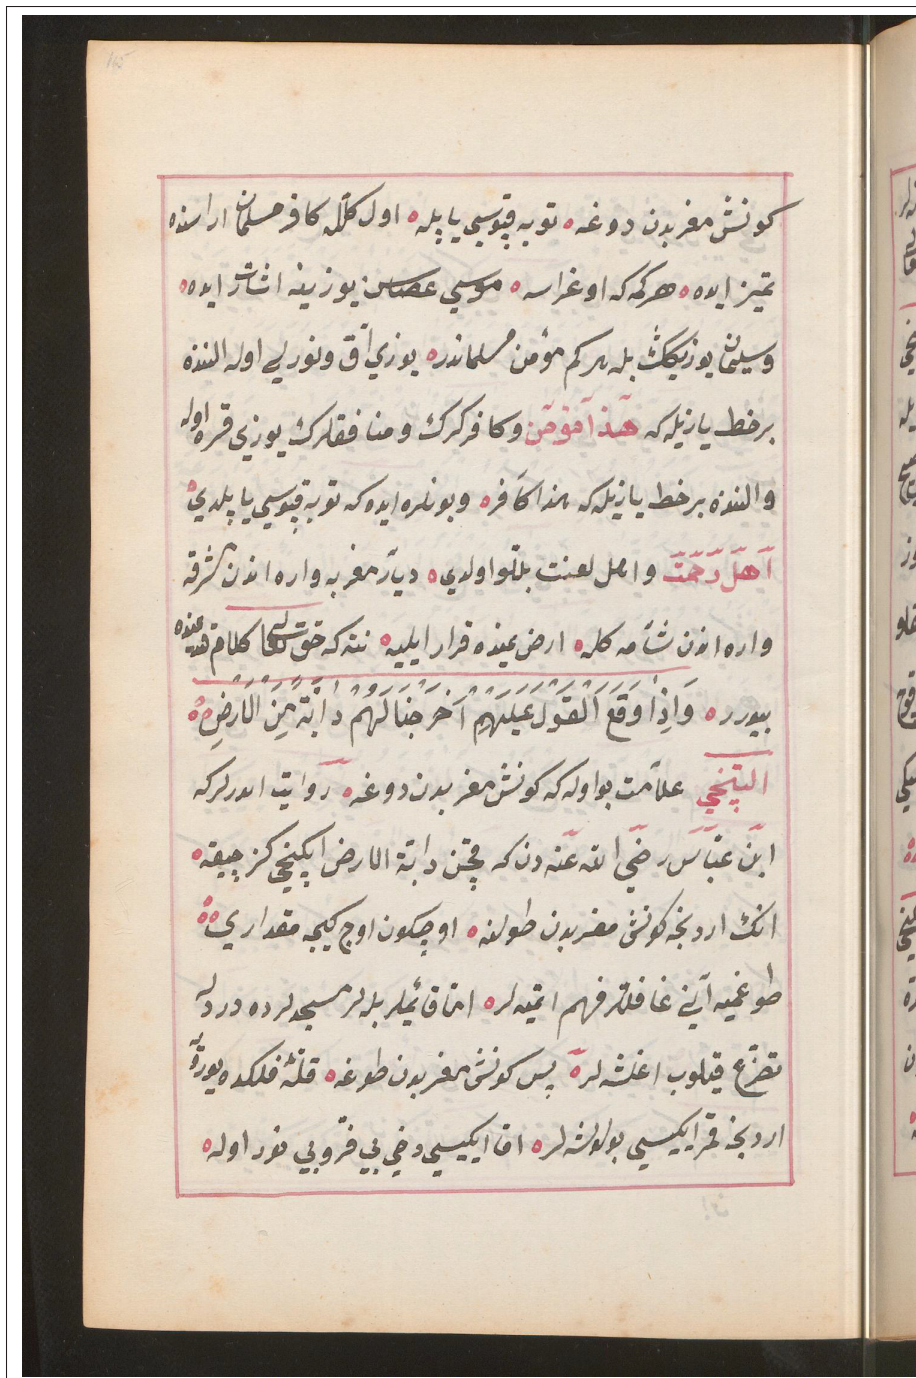 كونش مغربدن دوغه ٥ توبه قپوسي ياپله ٥ اول كلله كافر مسلمان اراسنده
تميز ايده ٥ هر كمه كه اوغراسه ٥ موسي عصاسن يوزينه اشارت ايده ٥
وسليمان يوزيكنك بله هر كم مؤمن مسلماندر ٥ يوزي آق ونورلي اوله النده
بر خط يازيله كه هذا مؤمن وكافرلرك ومنافقلرك يوزي قره اوله
والنده بر خط يازيله كه هذا كافر ٥ وبونلره ايده كه توبه قپوسي ياپلدي ٥
اهل رحمت واهل لعنت بللو اولدي ٥ ديار مغربه واره اندن مشرقه
واره اندن شامه كله ٥ ارض يمنده قرار ايليه ٥ نته كه حق تعالى كلام قديمنده
بيورر ٥ وَاِذَا وَقَعَ الْقَوْلُ عَلَيْهِمْ اَخْرَجْنَا لَهُمْ دَابَّةً مِنَ الْاَرْضِ ٥
التنجي علامت بو اوله كه كونش مغربدن دوغه ٥ روايت ايدرلر كه
ابن عباس رضي الله عنه دن كه قچن دابة الارض ايكنجي كز چيقه ٥
انك اردنجه كونش مغربدن طولنه ٥ اوچكون اوچ كيجه مقداري ٥
طوغميه آني غافللر فهم اتميه لر ٥ امّا قائملر بله لر مسجدلرده دردله
تضرّع قيلوب اغلشه لر ٥ پس كونش مغربدن طوغه ٥ قلّهٔ فلكده يوريه
اردنجه قمر ايكيسي بولشه لر ٥ امّا ايكيسي دخي بي فرّ وبي نور اوله ٥